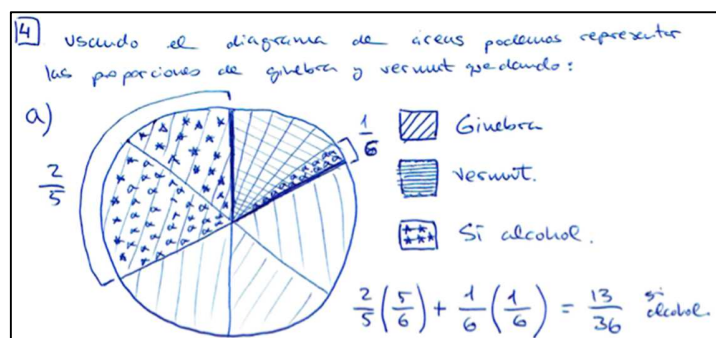 4 Usando el diagrama de áreas podemos representar
las proporciones de ginebra y vermut quedando:
a)
2/5
1/6
Ginebra
Vermut.
Si alcohol.
2/5 (5/6) + 1/6 (1/6) = 13/36 si alcohol.